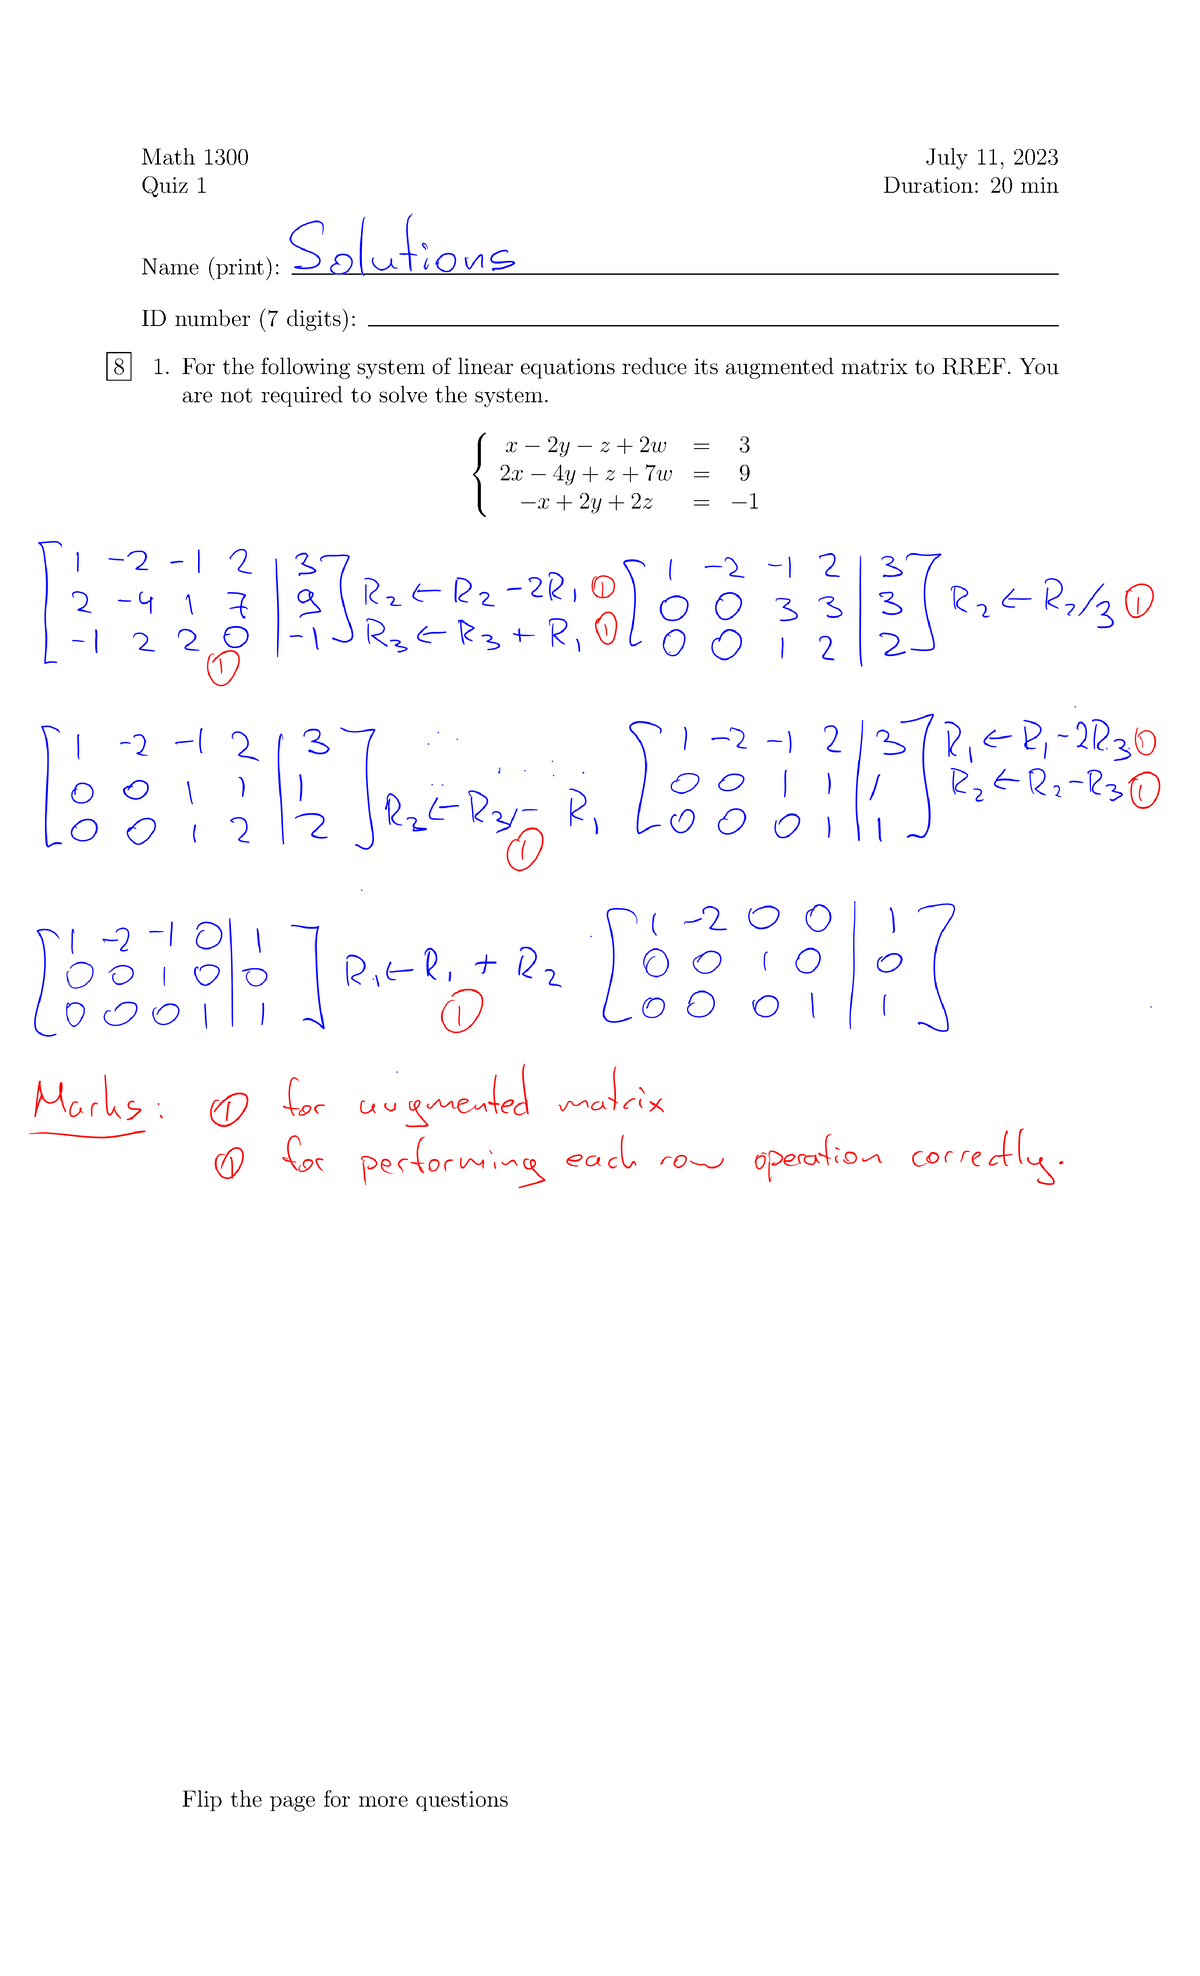 Math 1300 July 11, 2023
Quiz 1 Duration: 20 min
Name (print): Solutions
ID number (7 digits):
8 1. For the following system of linear equations reduce its augmented matrix to RREF. You
are not required to solve the system.
x − 2y − z + 2w = 3
2x − 4y + z + 7w = 9
−x + 2y + 2z = −1
[ 1 -2 -1 2 | 3 ] [ 1 -2 -1 2 | 3 ]
[ 2 -4 1 7 | 9 ] R₂ ← R₂ - 2R₁ ① [ 0 0 3 3 | 3 ] R₂ ← R₂/3 ①
[ -1 2 2 0 | -1 ] R₃ ← R₃ + R₁ ① [ 0 0 1 2 | 2 ]
①
[ 1 -2 -1 2 | 3 ] [ 1 -2 -1 2 | 3 ] R₁ ← R₁ - 2R₃ ①
[ 0 0 1 1 | 1 ] [ 0 0 1 1 | 1 ] R₂ ← R₂ - R₃ ①
[ 0 0 1 2 | 2 ] R₃ ← R₃ - R₁ [ 0 0 0 1 | 1 ]
①
[ 1 -2 -1 0 | 1 ] [ 1 -2 0 0 | 1 ]
[ 0 0 1 0 | 0 ] R₁ ← R₁ + R₂ [ 0 0 1 0 | 0 ]
[ 0 0 0 1 | 1 ] [ 0 0 0 1 | 1 ]
①
Marks: ① for augmented matrix
① for performing each row operation correctly.
Flip the page for more questions